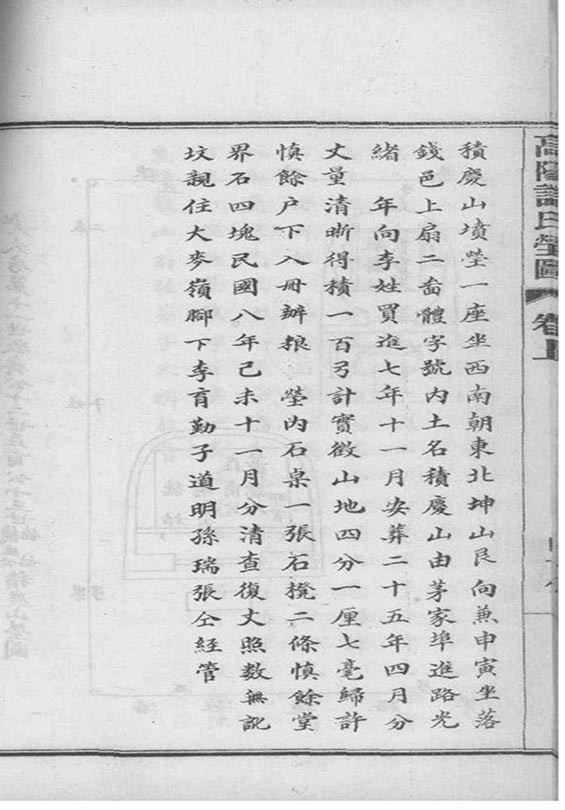 高陽許氏塋圖 卷上
積慶山墳塋一座坐西南朝東北坤山艮向兼申寅坐落
錢邑上扇二啚體字號內土名積慶山由茅家埠進路光
緒 年向李姓買進七年十一月安葬二十五年四月分
丈量清晰得積一百弓計實徵山地四分一厘七毫歸許
慎餘户下入冊辦粮 塋內石桌一張石櫈二條慎餘堂
界石四塊民國八年己未十一月分清查復丈照數無訛
坟親住大麥嶺腳下李育勤子道明孫瑞張仝経管